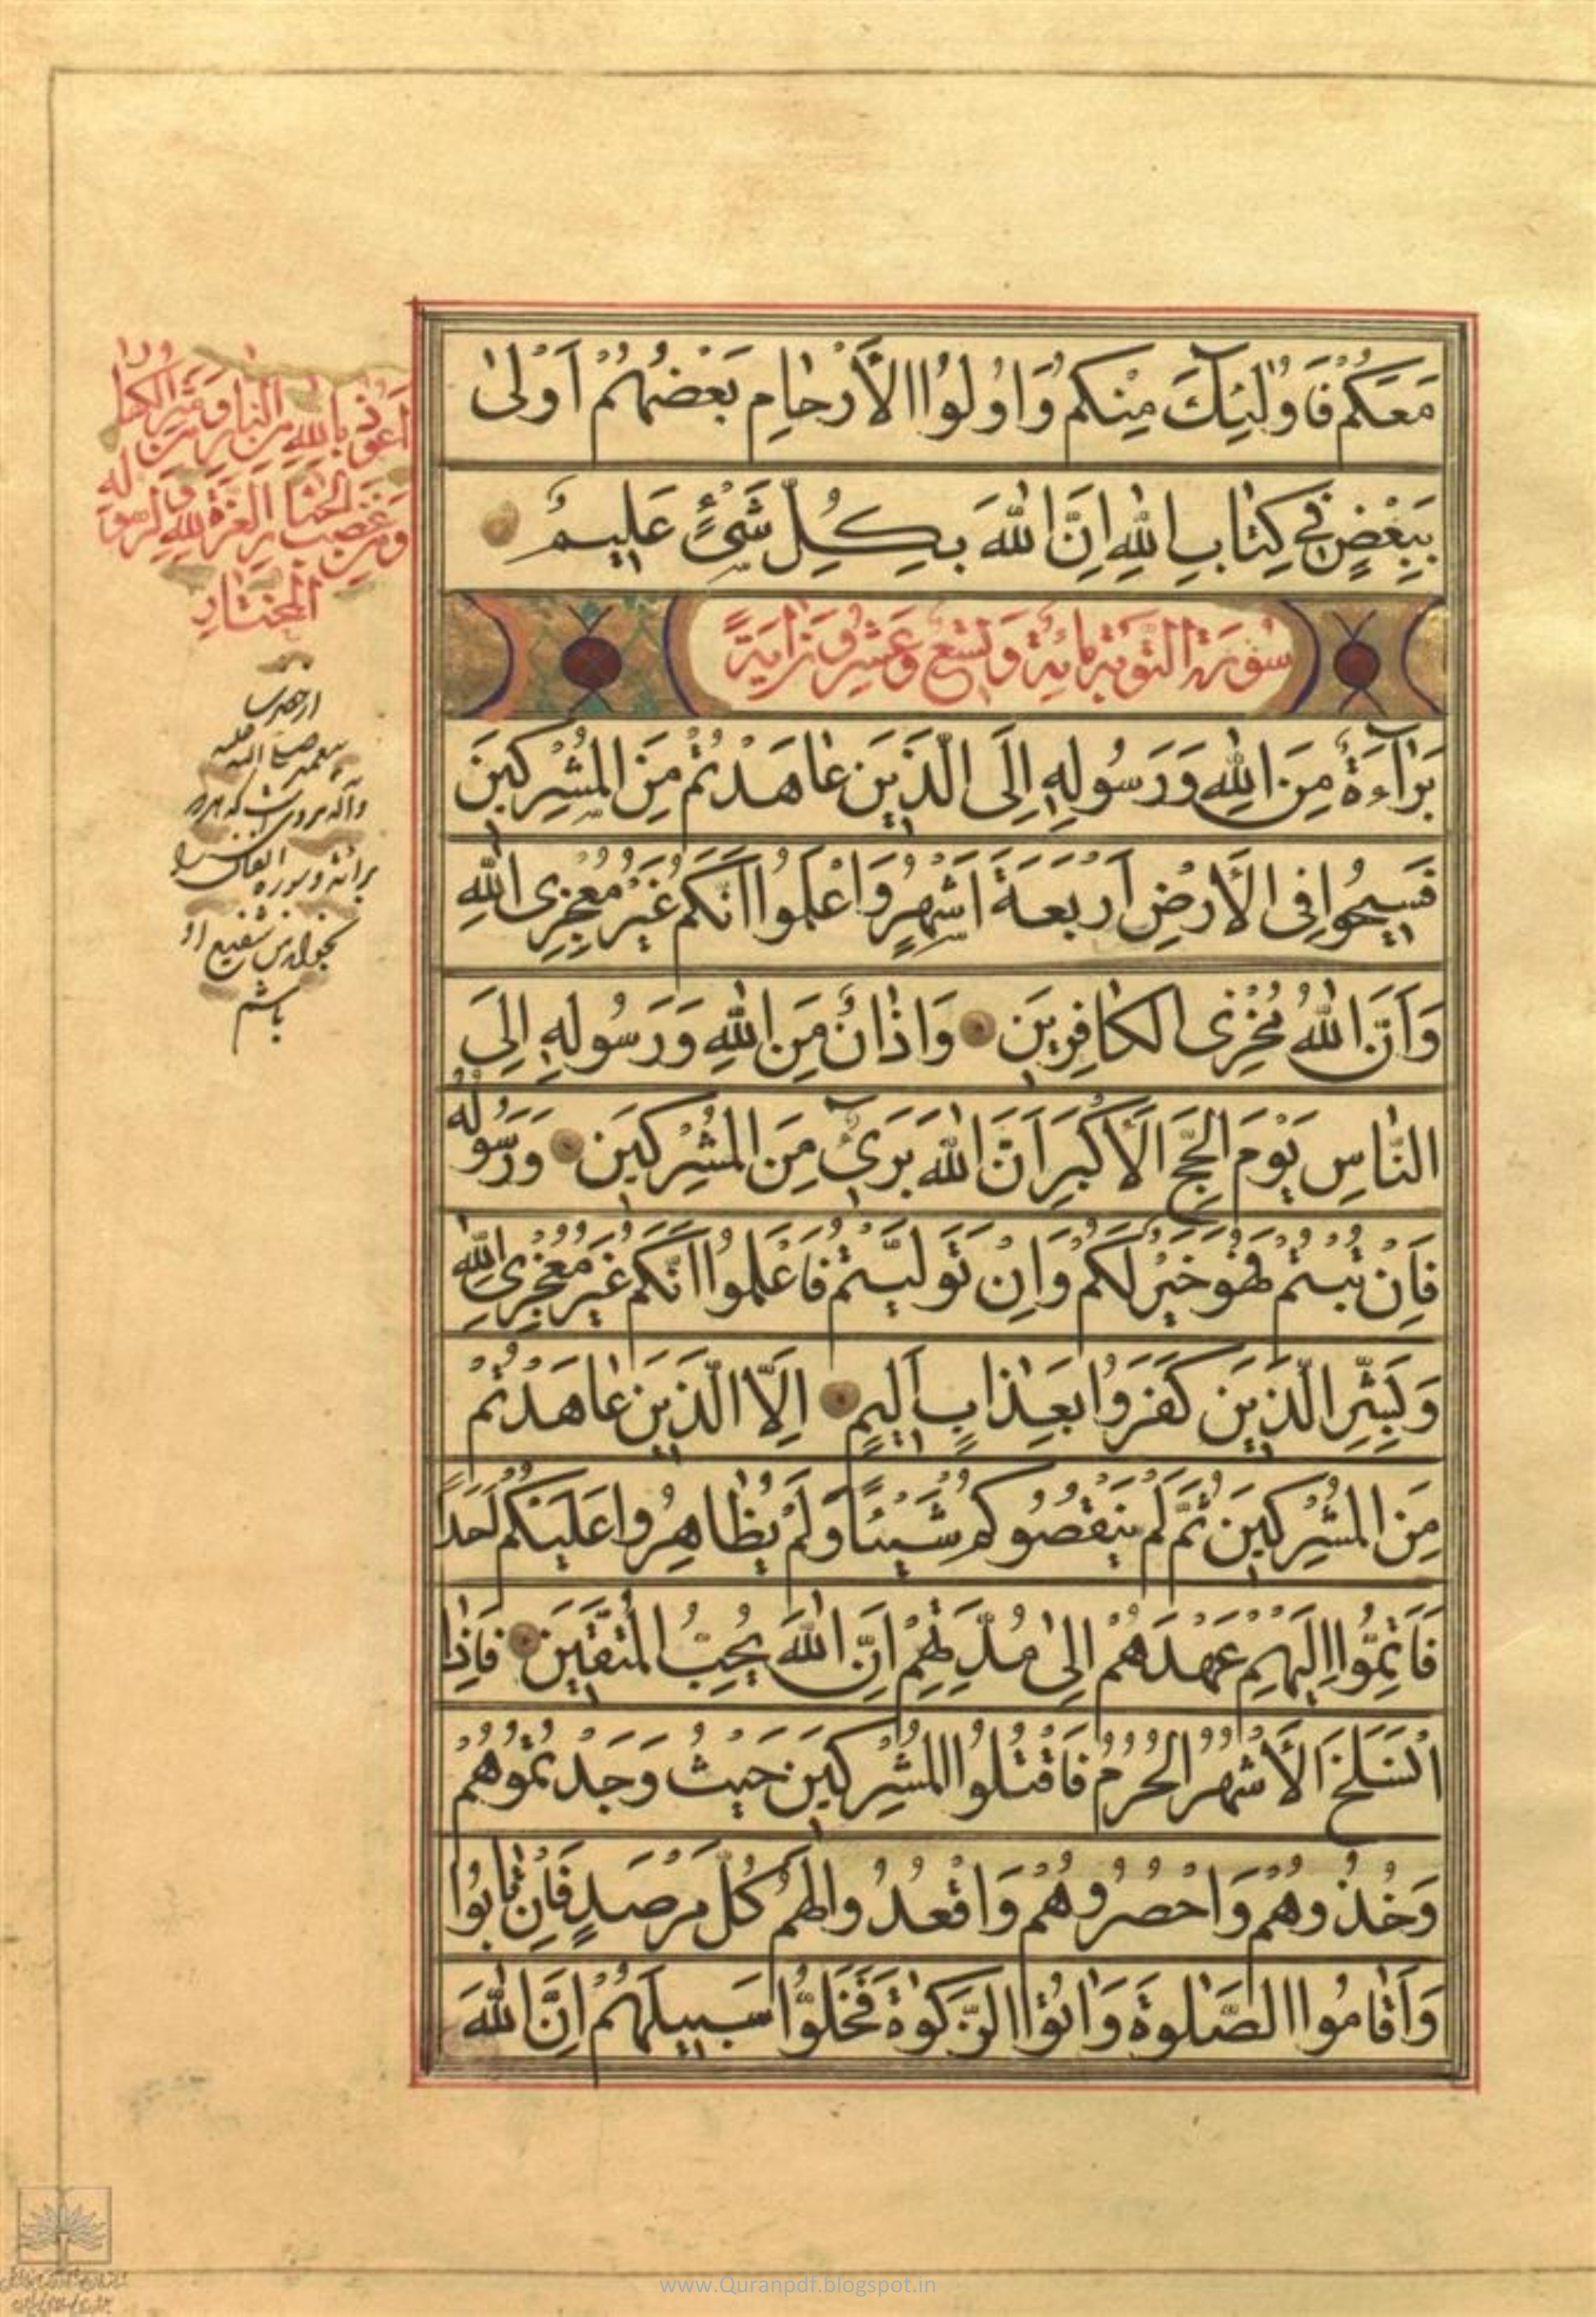 مَعَكُمْ فَاُولٰئِكَ مِنْكُمْ وَاُولُوا الْاَرْحَامِ بَعْضُهُمْ اَوْلىٰ
بِبَعْضٍ فِي كِتَابِ اللهِ اِنَّ اللهَ بِكُلِّ شَيْءٍ عَلِيمٌ
سُورَةُ التَّوْبَةِ مِائَةٌ وَتِسْعٌ وَعِشْرُونَ اٰيَةً
بَرَآءَةٌ مِنَ اللهِ وَرَسُولِهِ اِلَى الَّذِينَ عَاهَدْتُمْ مِنَ الْمُشْرِكِينَ
فَسِيحُوا فِي الْاَرْضِ اَرْبَعَةَ اَشْهُرٍ وَاعْلَمُوا اَنَّكُمْ غَيْرُ مُعْجِزِي اللهِ
وَاَنَّ اللهَ مُخْزِي الْكَافِرِينَ وَاَذَانٌ مِنَ اللهِ وَرَسُولِهِ اِلَى
النَّاسِ يَوْمَ الْحَجِّ الْاَكْبَرِ اَنَّ اللهَ بَرِيءٌ مِنَ الْمُشْرِكِينَ وَرَسُولُهُ
فَاِنْ تُبْتُمْ فَهُوَ خَيْرٌ لَكُمْ وَاِنْ تَوَلَّيْتُمْ فَاعْلَمُوا اَنَّكُمْ غَيْرُ مُعْجِزِي اللهِ
وَبَشِّرِ الَّذِينَ كَفَرُوا بِعَذَابٍ اَلِيمٍ اِلَّا الَّذِينَ عَاهَدْتُمْ
مِنَ الْمُشْرِكِينَ ثُمَّ لَمْ يَنْقُصُوكُمْ شَيْئًا وَلَمْ يُظَاهِرُوا عَلَيْكُمْ اَحَدًا
فَاَتِمُّوا اِلَيْهِمْ عَهْدَهُمْ اِلىٰ مُدَّتِهِمْ اِنَّ اللهَ يُحِبُّ الْمُتَّقِينَ فَاِذَا
انْسَلَخَ الْاَشْهُرُ الْحُرُمُ فَاقْتُلُوا الْمُشْرِكِينَ حَيْثُ وَجَدْتُمُوهُمْ
وَخُذُوهُمْ وَاحْصُرُوهُمْ وَاقْعُدُوا لَهُمْ كُلَّ مَرْصَدٍ فَاِنْ تَابُوا
وَاَقَامُوا الصَّلٰوةَ وَاٰتَوُا الزَّكٰوةَ فَخَلُّوا سَبِيلَهُمْ اِنَّ اللهَ
اعوذ بالله من النار ومن شر الكفار
ومن غضب الجبار العزة لله ولرسوله
المختار
باشم
www.Quranpdf.blogspot.in